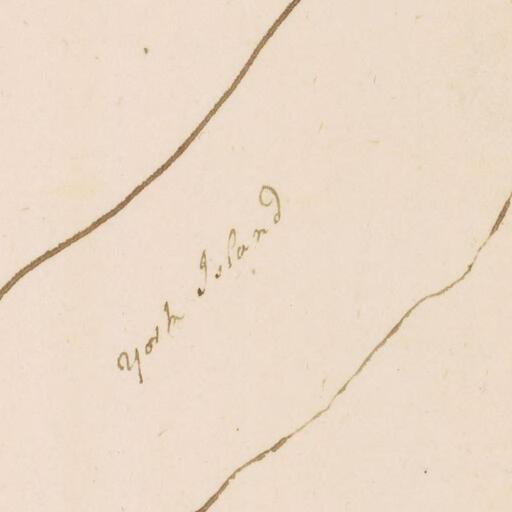 York Island